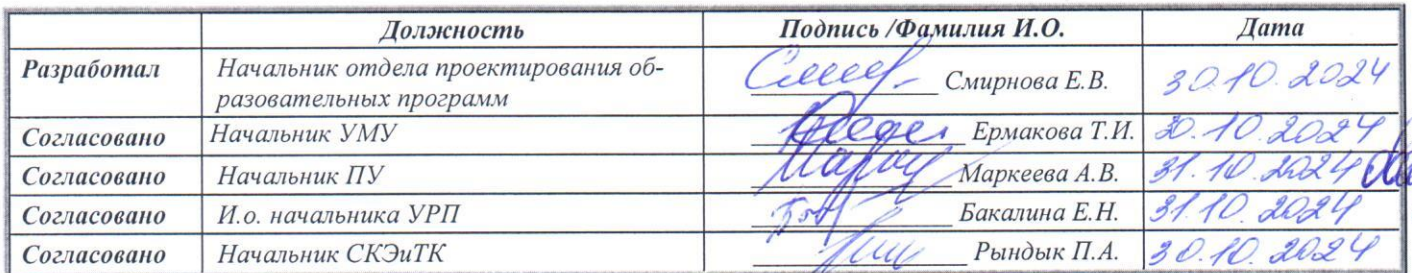 Должность Подпись /Фамилия И.О. Дата
Разработал Начальник отдела проектирования об-
разовательных программ Смирнова Е.В. 30.10.2024
Согласовано Начальник УМУ Ермакова Т.И. 30.10.2024
Согласовано Начальник ПУ Маркеева А.В. 31.10.2024
Согласовано И.о. начальника УРП Бакалина Е.Н. 31.10.2024
Согласовано Начальник СКЭиТК Рындык П.А. 30.10.2024